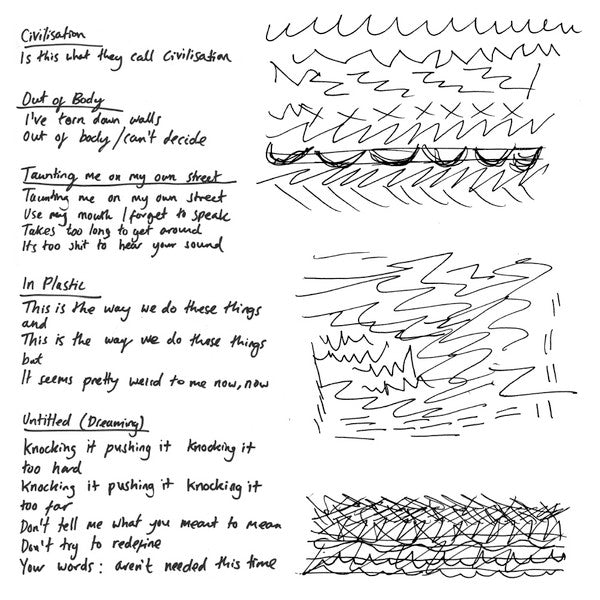 Civilisation
Is this what they call Civilisation
Out of Body
I've torn down walls
Out of body / can't decide
Taunting me on my own street
Taunting me on my own street
Use my mouth / forget to speak
Takes too long to get around
Its too shit to hear your sound
In Plastic
This is the way we do these things
and
This is the way we do these things
but
It seems pretty weird to me now, now
Untitled (Dreaming)
Knocking it pushing it knocking it
too hard
Knocking it pushing it knocking it
too far
Don't tell me what you meant to mean
Don't try to redefine
Your words: aren't needed this time